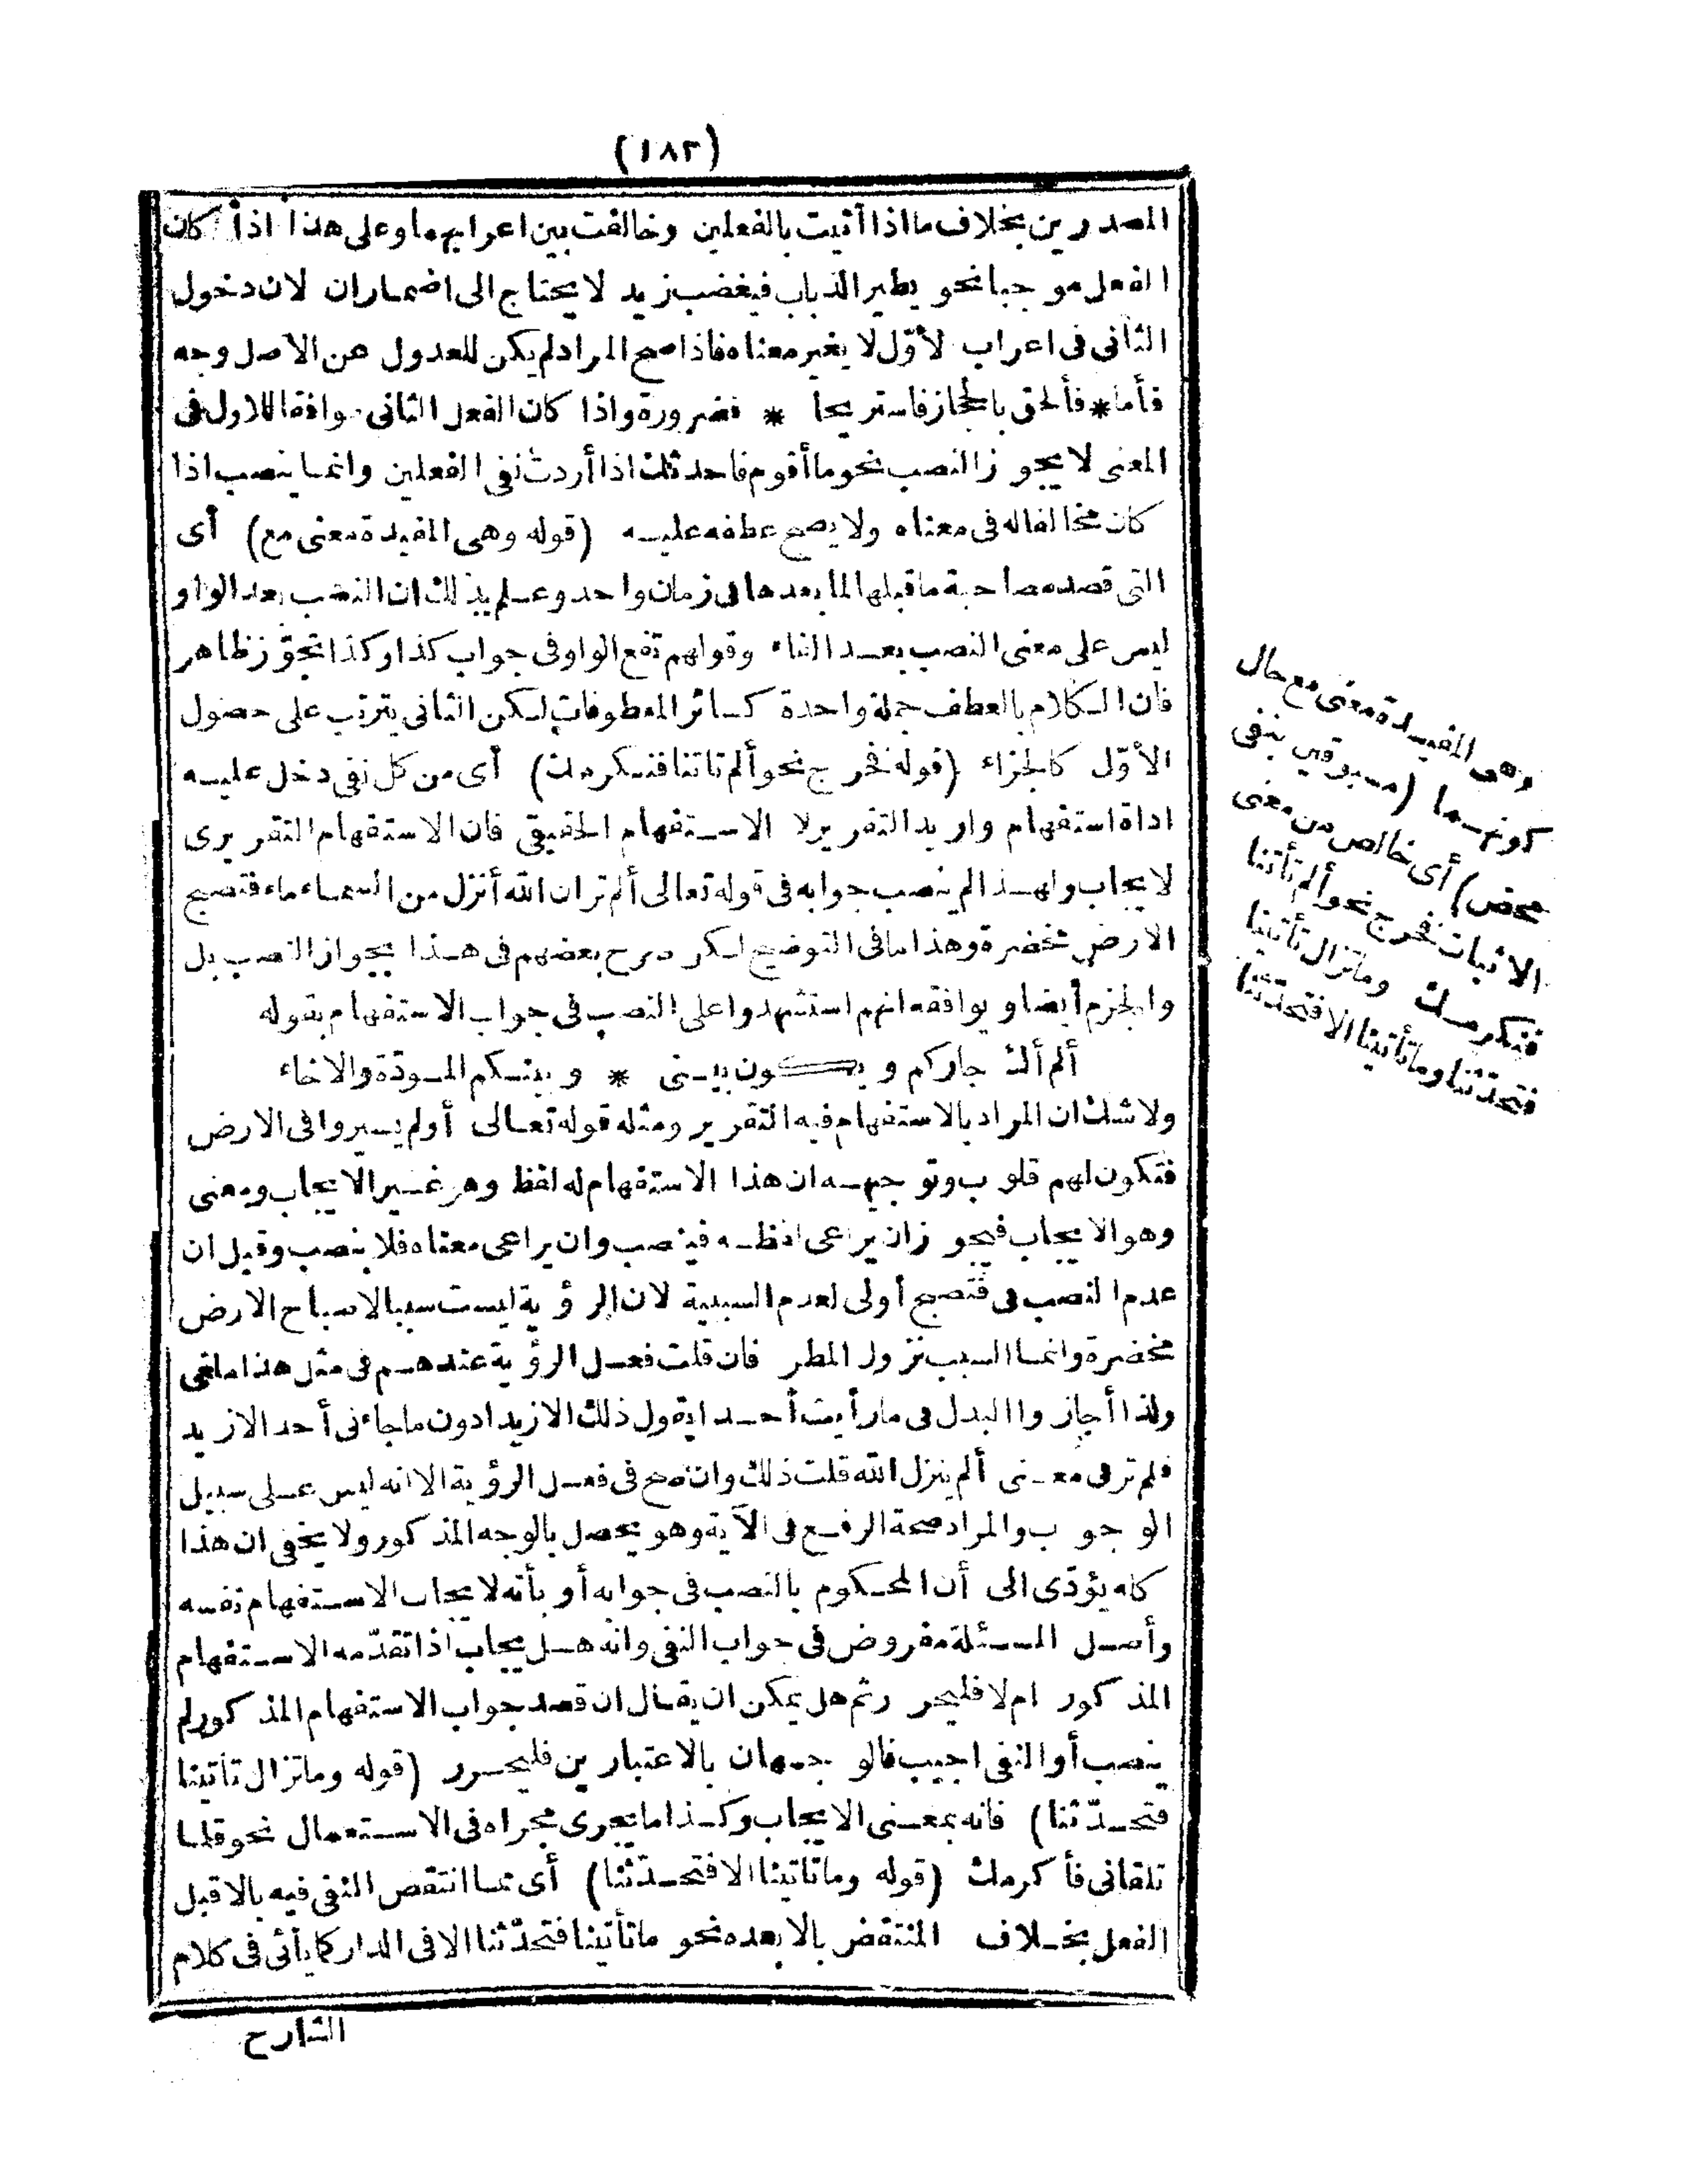 (١٨٢)
المصدرين بخلاف ما اذا أتيت بالفعلين وخالفت بين اعرابهما وعلى هذا اذا كان
الفعل موجبا نحو يطير الذباب فيغضب زيد لا يحتاج الى اضمار ان لان دخول
الثانى فى اعراب لأوّل لا يغير معناه فاذا صح المراد لم يكن للعدول عن الاصل وجه
فأما * فألحق بالحجاز فاستريحا * فضرورة واذا كان الفعل الثانى موافقا للاول فى
المعنى لا يجوز النصب نحو ما أقوم فاحدثك اذا أردت نفى الفعلين وانما ينصب اذا
كان مخالفا له فى معناه ولا يصح عطفه عليه (قوله وهى المفيدة معنى مع) أى
التى قصد مصاحبة ما قبلها لما بعدها فى زمان واحد وعلم بذلك ان النصب بعد الواو
ليس على معنى النصب بعد الفاء وقولهم تقع الواو فى جواب كذا وكذا تجوّز ظاهر
فان الكلام بالعطف جملة واحدة كسائر المعطوفات لكن الثانى يترتب على حصول
الأوّل كالجزاء (قوله فخرج نحو ألم تاتنا فنكرمك) أى من كل نفى دخل عليه
اداة استفهام واريد التقرير لا الاستفهام الحقيقى فان الاستفهام التقريرى
لا يجاب ولهذا لم ينصب جوابه فى قوله تعالى ألم تر ان الله أنزل من السماء ماء فتصبح
الارض مخضرة وهذا ما فى التوضيح لكن صرح بعضهم فى هذا بجواز النصب بل
والجزم أيضا ويوافقه انهم استشهدوا على النصب فى جواب الاستفهام بقوله
ألم أك جاركم ويكون بينى * وبينكم المودّة والاخاء
ولا شك ان المراد بالاستفهام فيه التقرير ومثله قوله تعالى أولم يسيروا فى الارض
فتكون لهم قلوب وتوجيهه ان هذا الاستفهام له لفظ وهو غير الايجاب ومعنى
وهو الايجاب فيجوز ان يراعى لفظه فينصب وان يراعى معناه فلا ينصب وقيل ان
عدم النصب فى فتصبح أولى لعدم السببية لان الرؤية ليست سببا لاصباح الارض
مخضرة وانما السبب نزول المطر فان قلت فعل الرؤية عندهم فى مثل هذا ملغى
ولذا أجازوا البدل فى ما رأيت أحدا يقول ذلك الا زيدا دون ما جاءنى أحد الا زيد
فلم تر فى معنى ألم ينزل الله قلت ذلك وان صح فى فعل الرؤية الا انه ليس على سبيل
الوجوب والمراد صحة الرفع فى الآية وهو يحصل بالوجه المذكور ولا يخفى ان هذا
كله يؤدّى الى أن المحكوم بالنصب فى جوابه أو بأنه لا يجاب الاستفهام نفسه
وأصل المسئلة مفروض فى جواب النفى وانه هل يجاب اذا تقدّمه الاستفهام
المذكور ام لا فليحرر ثم هل يمكن ان يقال ان قصد جواب الاستفهام المذكور لم
ينصب أو النفى اجيب فالوجهان بالاعتبارين فليحرر (قوله وما تزال تأتينا
فتحدّثنا) فانه بمعنى الايجاب وكذا ما يجرى مجراه فى الاستعمال نحو قلما
تلقانى فأكرمك (قوله وما تاتينا الا فتحدّثنا) أى مما انتقض النفى فيه بالا قبل
الفعل بخلاف المنتقض بالا بعده نحو ما تأتينا فتحدّثنا الا فى الدار كما يأتى فى كلام
الشارح
وهى المفيدة معنى مع حال
كونهما (مسبوقين بنفى
محض) أى خالص من معنى
الاثبات فخرج نحو ألم تأتنا
فنكرمك وما تزال تأتينا
فتحدّثنا وما تأتينا الا فتحدّثنا